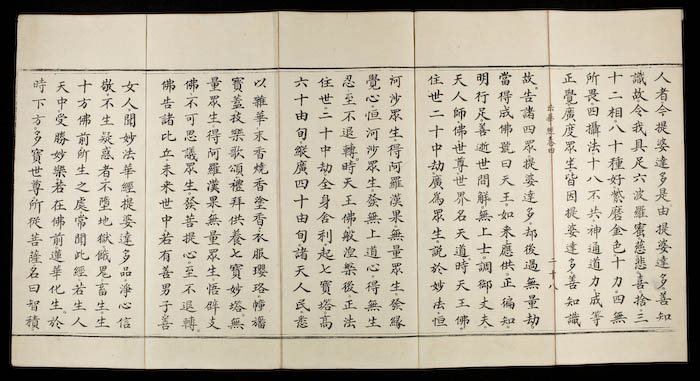 人者今提婆達多是由提婆達多善知
識故令我具足六波羅蜜慈悲喜捨三
十二相八十種好紫磨金色十力四無
所畏四攝法十八不共神通道力成等
正覺廣度眾生皆因提婆達多善知識
法華經卷四 二十八
故告諸四眾提婆達多却後過無量劫
當得成佛號曰天王如來應供正徧知
明行足善逝世間解無上士調御丈夫
天人師佛世尊世界名天道時天王佛
住世二十中劫廣為眾生說於妙法恒
河沙眾生得阿羅漢果無量眾生發緣
覺心恒河沙眾生發無上道心得無生
忍至不退轉時天王佛般涅槃後正法
住世二十中劫全身舍利起七寶塔高
六十由旬縱廣四十由旬諸天人民悉
以雜華末香燒香塗香衣服瓔珞幢旛
寶蓋技樂歌頌禮拜供養七寶妙塔無
量眾生得阿羅漢果無量眾生悟辟支
佛不可思議眾生發菩提心至不退轉
佛告諸比丘未來世中若有善男子善
女人聞妙法華經提婆達多品淨心信
敬不生疑惑者不墮地獄餓鬼畜生生
十方佛前所生之處常聞此經若生人
天中受勝妙樂若在佛前蓮華化生於
時下方多寶世尊所從菩薩名曰智積